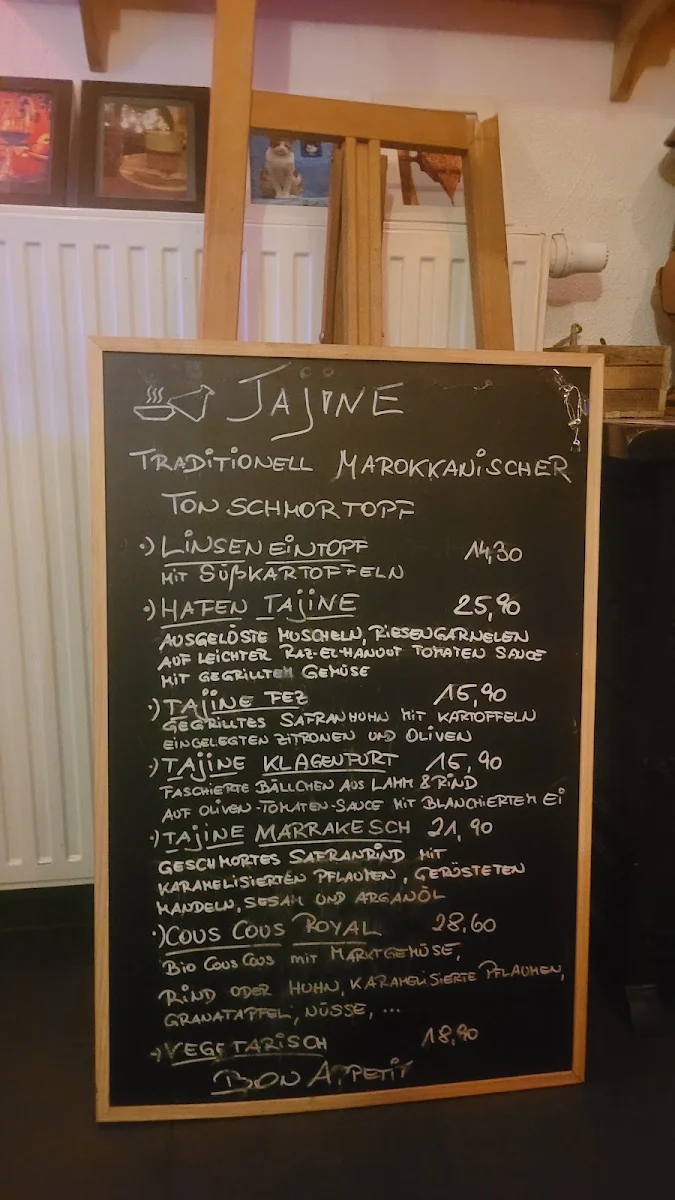 TAJINE
TRADITIONELL MAROKKANISCHER
TON SCHMORTOPF
•) LINSENEINTOPF 14,30
MIT SÜßKARTOFFELN
•) HAFEN TAJINE 25,90
AUSGELÖSTE MUSCHELN, RIESENGARNELEN
AUF LEICHTER RAZ-EL-HANOUT TOMATEN SAUCE
MIT GEGRILLTEM GEMÜSE
•) TAJINE FEZ 16,90
GEGRILLTES SAFRANHUHN MIT KARTOFFELN
EINGELEGTEN ZITRONEN UND OLIVEN
•) TAJINE KLAGENFURT 16,90
FASCHIERTE BÄLLCHEN AUS LAMM & RIND
AUF OLIVEN-TOMATEN-SAUCE MIT BLANCHIERTEM EI
•) TAJINE MARRAKESCH 21,90
GESCHMORTES SAFRANRIND MIT
KARAMELISIERTEN PFLAUMEN, GERÖSTETEN
MANDELN, SESAM UND ARGANÖL
•) COUS COUS ROYAL 28,60
BIO COUS COUS MIT MARKTGEMÜSE,
RIND ODER HUHN, KARAMELISIERTE PFLAUMEN,
GRANATAPFEL, NÜSSE, ...
→ VEGETARISCH 18,90
BON APPETIT